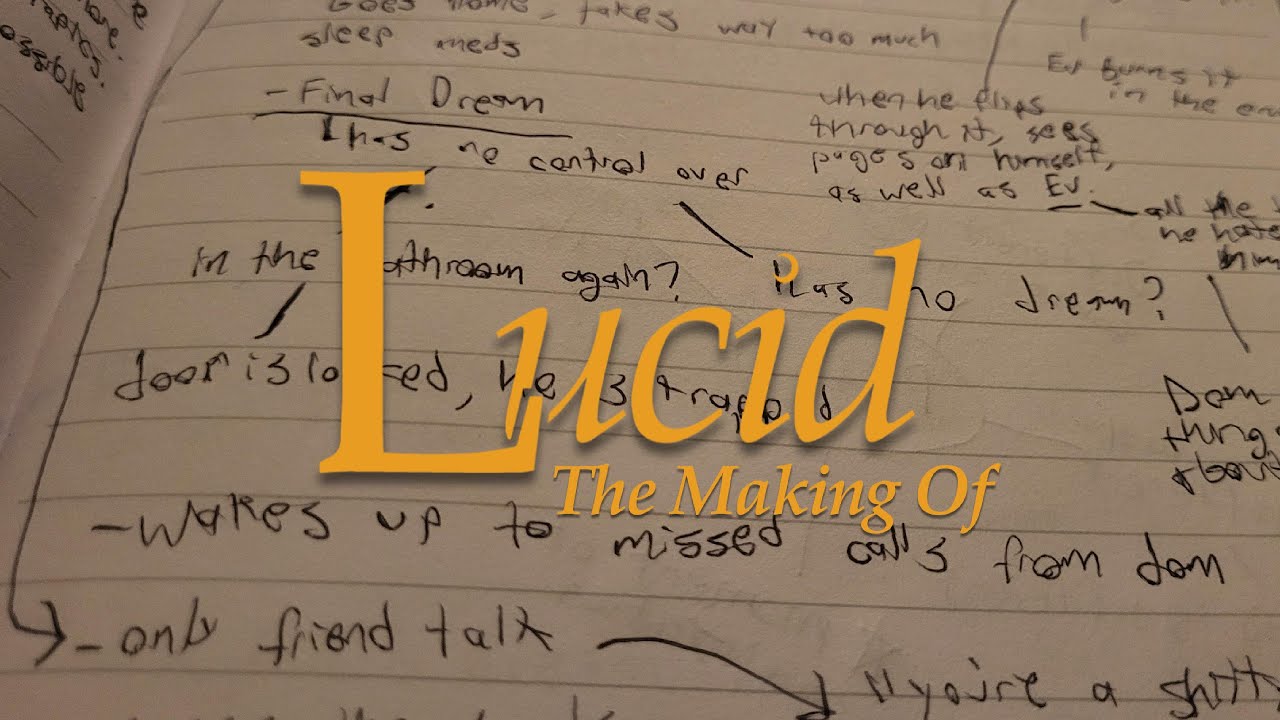 Goes home, takes way too much
sleep meds
- Final Dream
has no control over
in the bathroom again?
Has no dream?
door is locked, he is trapped
- Wakes up to missed calls from dom
- only friend talk
"you're a shitty
when he flips
through it, sees
pages on himself,
as well as Ev.
Ev burns it
in the end
all the
he hate
him
Dom
thing
about
Lucid
The Making Of